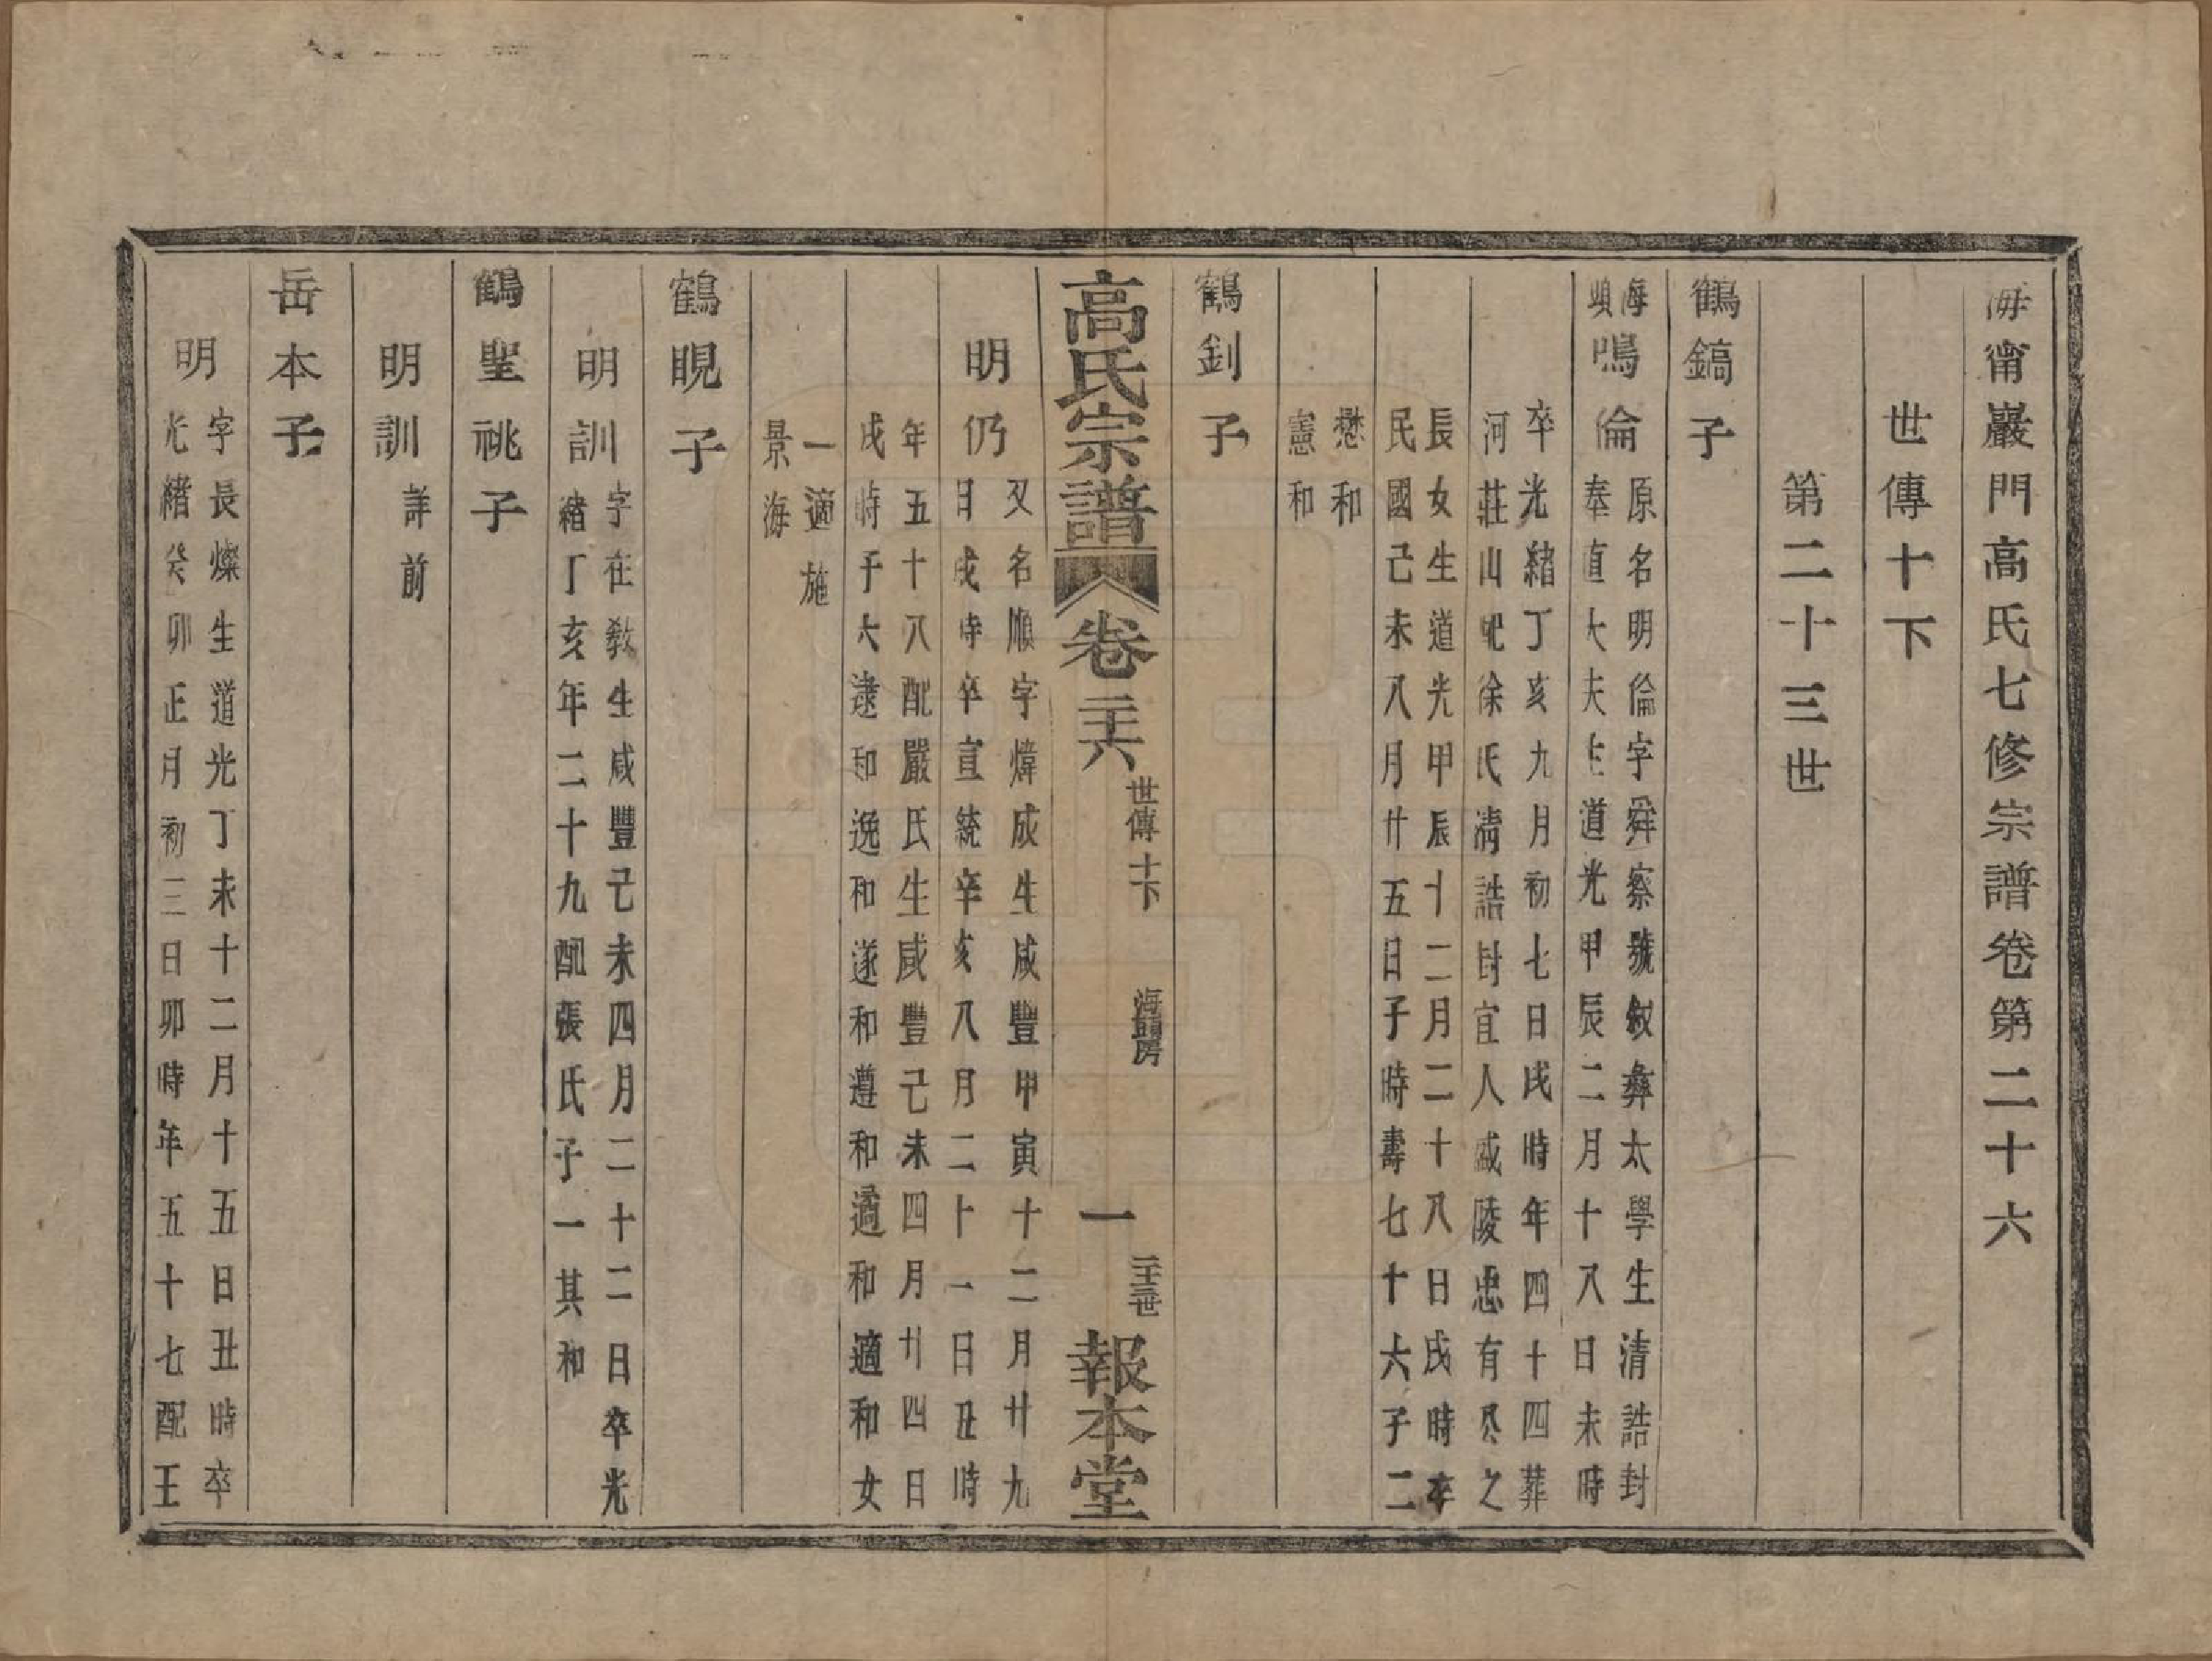 海甯巖門高氏七修宗譜卷第二十六
世傳十下
第二十三世
鶴鎬子
海
頭
鳴倫
原名明倫字舜察號敘彝太學生清誥封
奉直大夫生道光甲辰二月十八日未時
卒光緒丁亥九月初七日戌時年四十四葬
河莊山配徐氏清誥封宜人咸陵忠有公之
長女生道光甲辰十二月二十八日戌時卒
民國己未八月廿五日子時壽七十六子二
懋和
憲和
鶴釗子
高氏宗譜
卷二十六
世傳十下
海頭房
一
二十三世
報本堂
明仍
又名順字煒成生咸豐甲寅十二月廿九
日戌時卒宣統辛亥八月二十一日丑時
年五十八配嚴氏生咸豐己未四月廿四日
戌時子六逵和逸和遂和遵和遹和適和女
一適施
景海
鶴晛子
明訓
字在敎生咸豐己未四月二十二日卒光
緒丁亥年二十九配張氏子一其和
鶴聖祧子
明訓
詳前
岳本子
明
字長燦生道光丁未十二月十五日丑時卒
光緒癸卯正月初三日卯時年五十七配王